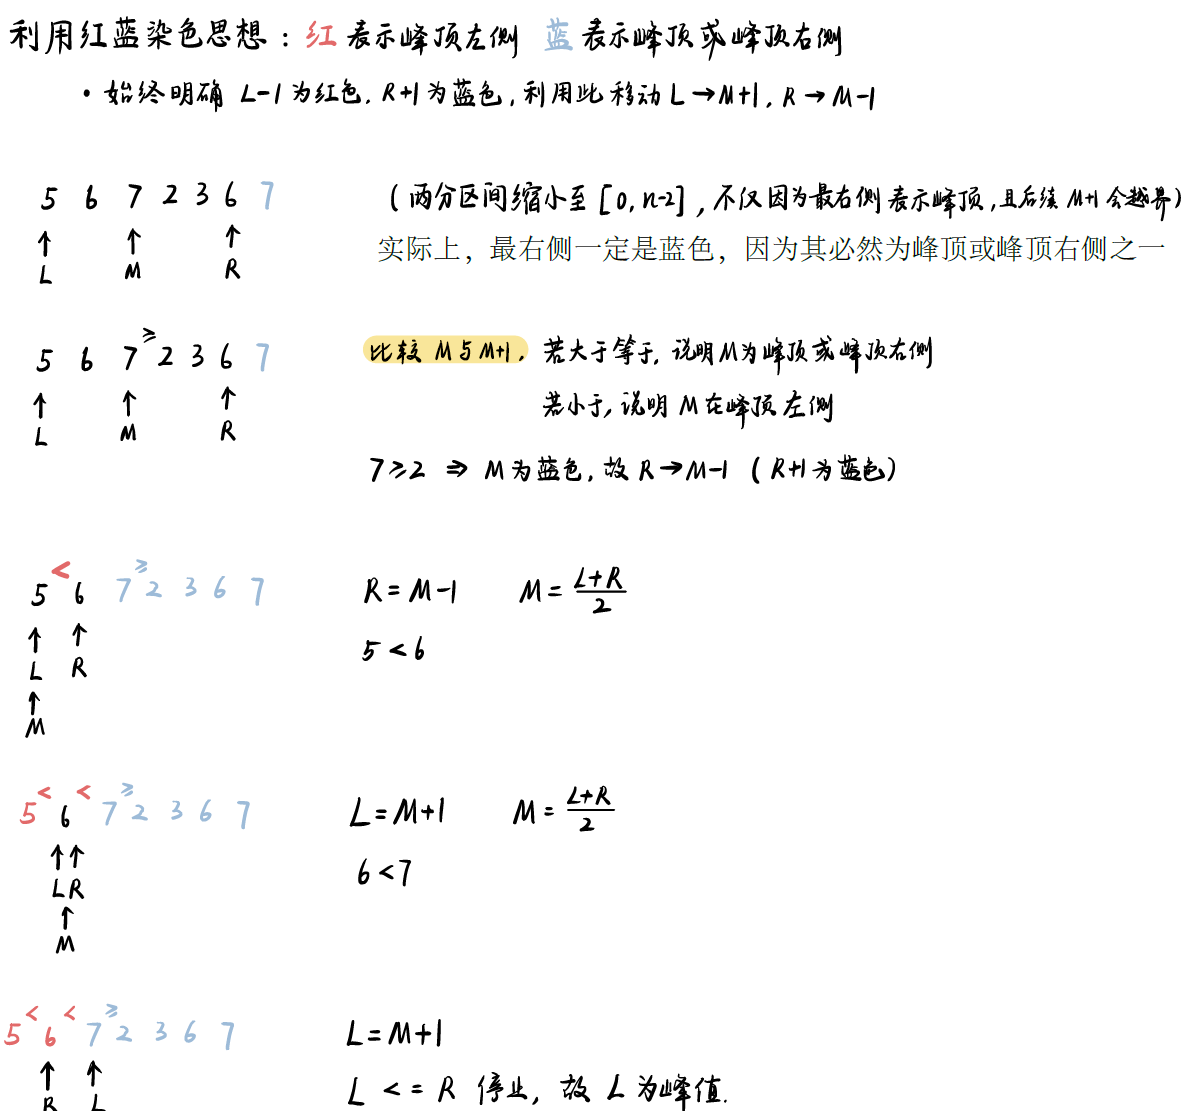 利用红蓝染色思想：红 表示峰顶左侧 蓝 表示峰顶或峰顶右侧
• 始终明确 L-1 为红色, R+1 为蓝色, 利用此移动 L→M+1, R→M-1
5 6 7 2 3 6 7
(两分区间缩小至 [0, n-2], 不仅因为最右侧表示峰顶, 且后续 M+1 会越界)
↑ ↑ ↑
L M R
实际上，最右侧一定是蓝色，因为其必然为峰顶或峰顶右侧之一
5 6 7 ≥ 2 3 6 7
比较 M 与 M+1, 若大于等于, 说明M为峰顶或峰顶右侧
↑ ↑ ↑
L M R
若小于, 说明 M 在峰顶左侧
7≥2 ⇒ M 为蓝色, 故 R→M-1 (R+1 为蓝色)
5 < 6 7 ≥ 2 3 6 7
R = M-1 M = L+R/2
↑ ↑
L R
↑
M
5 < 6
5 < 6 < 7 ≥ 2 3 6 7
L = M+1 M = L+R/2
↑↑
LR
↑
M
6 < 7
5 < 6 < 7 ≥ 2 3 6 7
L = M+1
↑ ↑
R L
L <= R 停止, 故 L 为峰值.